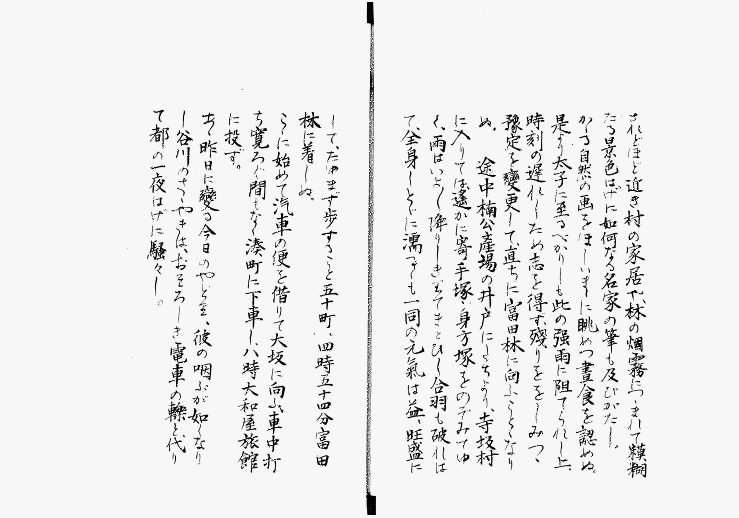 されどほど近き村の家居や、林の烟霧につゝまれて糢糊
たる景色はげに如何なる名家の筆も及びがたし。
かゝる自然の画をほしいまゝに眺めつ晝食を認めぬ。
是より太子に至るべかりしも此の强雨に阻てられし上、
時刻の遅れしため志を得ず、殘りをゝしみつゝ
豫定を變更して、直ちに富田林に向ふことゝなり
ぬ。途中楠公產場の井戸にたちより、寺坂村
に入りては遙かに寄手塚、身方塚をのぞみてゆ
く、雨はいよ〱降りしきりてまとひし合羽も破れは
て、全身しとゞに濡つるも一同の元氣は益〻旺盛に
して、たゆまず歩すること五十町、四時五十四分富田
林に着しぬ。
こゝに始めて汽車の便を借りて大坂に向ふ、車中打
ち寛ろぐ間もなく湊町に下車し、八時大和屋旅館
に投ず。
あゝ昨日に變る今日のやどりよ、彼の咽ぶが如くなり
し谷川のさゝやきは、おそろしき電車の轢と代り
て都の一夜はげに騷々し。